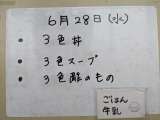 6月28日(水)
・3色丼
・3色スープ
・3色酢のもの
ごはん
牛乳